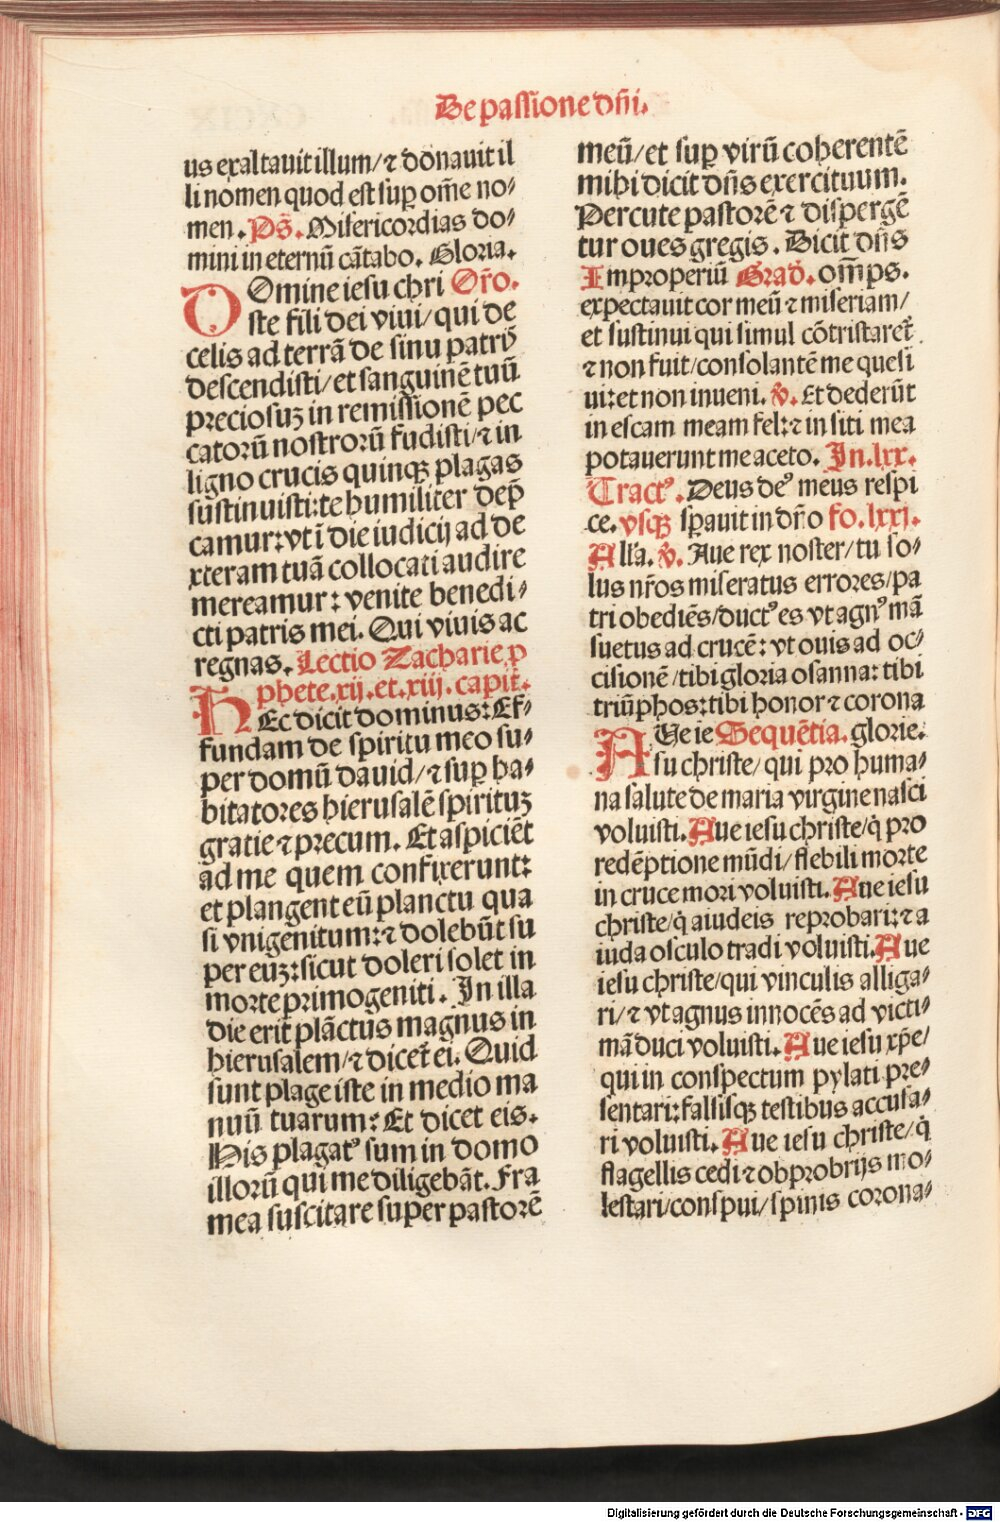 De passione dñi.
us exaltauit illum/ ⁊ donauit il
li nomen quod est suꝑ om̄e no⸗
men. Ps̄. Misericordias do⸗
mini in eternū cātabo. Gloria.
DOmine iesu chri Or̄o.
ste fili dei viui/ qui de
celis ad terrā de sinu patrꝭ
descendisti/ et sanguinē tuū
preciosuꝫ in remissionē pec
catorū nostrorū fudisti/ ⁊ in
ligno crucis quinqꝫ plagas
sustinuisti: te humiliter dep̄
camur: vt ī die iudicij ad de
xteram tuā collocati audire
mereamur: venite benedi⸗
cti patris mei. Qui viuis ac
regnas. Lectio Zacharie ꝓ
phete. xij. et. xiij. capit̄.
HEc dicit dominus: Ef⸗
fundam de spiritu meo su⸗
per domū dauid/ ⁊ suꝑ ha⸗
bitatores hierusalē spirituꝫ
gratie ⁊ precum. Et aspiciēt
ad me quem confixerunt:
et plangent eū planctu qua
si vnigenitum: ⁊ dolebūt su
per euꝫ: sicut doleri solet in
morte primogeniti. In illa
die erit plāctus magnus in
hierusalem/ ⁊ dicet̄ ei. Quid
sunt plage iste in medio ma
nuū tuarum: Et dicet eis.
His plagatꝰ sum in domo
illorū qui me diligebāt. Fra
mea suscitare super pastorē
meū/ et suꝑ virū coherentē
mihi dicit dn̄s exercituum.
Percute pastorē ⁊ dispergē
tur oues gregis. Dicit dn̄s
Improperiū Grad̄. om̄ps.
expectauit cor meū ⁊ miseriam/
et sustinui qui simul cōtristaret̄
⁊ non fuit/ consolantē me quesi
ui: et non inueni. v̄. Et dederūt
in escam meam fel: ⁊ in siti mea
potauerunt me aceto. In. lxx.
Tractꝰ. Deus deꝰ meus respi
ce. vsqꝫ sꝑauit in dn̄o fo. lxxj.
Alľa. v̄. Aue rex noster/ tu so⸗
lus nr̄os miseratus errores/ pa
tri obediēs/ ductꝰ es vt agnꝰ mā
suetus ad crucē: vt ouis ad oc⸗
cisionē/ tibi gloria osanna: tibi
triūphos: tibi honor ⁊ corona
AUe ie Sequētia. glorie.
su christe/ qui pro huma⸗
na salute de maria virgine nasci
voluisti. Aue iesu christe/ q̇ pro
redēptione mūdi/ flebili morte
in cruce mori voluisti. Aue iesu
christe/ q̇ a iudeis reprobari: ⁊ a
iuda osculo tradi voluisti. Aue
iesu christe/ qui vinculis alliga⸗
ri/ ⁊ vt agnus innocēs ad victi⸗
mā duci voluisti. Aue iesu xp̄e/
qui in conspectum pylati pre⸗
sentari: falsisqꝫ testibus accusa⸗
ri voluisti. Aue iesu christe/ q̇
flagellis cedi ⁊ obprobrijs mo⸗
lestari/ conspui/ spinis corona⸗
Digitalisierung gefördert durch die Deutsche Forschungsgemeinschaft - DFG